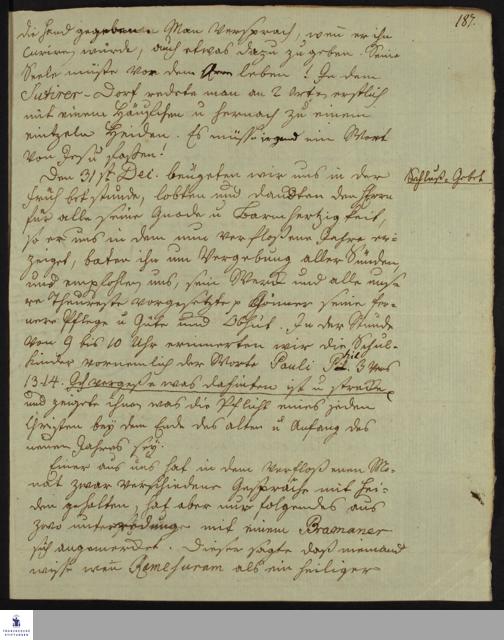 187.
die Hand gegeben. Man versprach, wenn er ihn
curiren würde, auch etwas dazu zu geben. Seine
Seele müste vor dem Herrn leben! In dem
Sutirer-Dorf redete man an 2 Orten, erstlich
mit einem Häuflein u hernach zu einem
eintzeln Heiden. Es müsse irgend ein Wort
von Jesu haften!
Den 31st Dec. beugeten wir uns in der
Schluß-Gebet
früh betstunde, lobten und danckten dem Herrn
für alle seine Gnade u Barmhertzigkeit,
so er uns in dem nun verfloßenen Jahre er-
zeiget, baten ihn um Vergebung aller Sünden,
und empfohlen uns, sein Werck und alle unse-
re theureste vorgesetzte Gönner seine fer-
nere Pflege u Güte und Obhut. In der Stunde
von 9 bis 10 Uhr erinnerten wir die Schul-
kinder vornemlich der Worte Pauli Phil 3 vers
13.14. Ich vergeße was dahinten ist u strecke
und zeigete ihnen was die Pflicht eines jeden
Christen bey dem Ende des alten u Anfang des
neuen Jahres sey.
Einer aus uns hat in dem verfloßenen Mo-
nat zwar verschiedene Gespräche mit Hei-
den gehalten, hat aber nur folgendes aus
zwo unterredungen mit einem Bramaner
sich angemercket. Dieser sagte daß niemand
wiße wenn Ramesuram als ein heiliger
FRANCKESCHE STIFTUNGEN